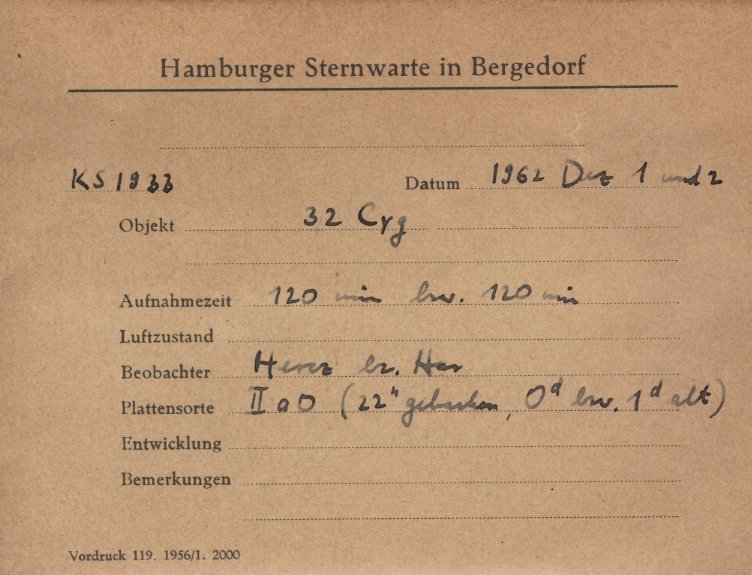 Hamburger Sternwarte in Bergedorf
KS 1933 Datum 1962 Dez 1 und 2
Objekt 32 Cyg
Aufnahmezeit 120 min bzw. 120 min
Luftzustand
Beobachter
Plattensorte II a O (22ʰ gebacken, 0ᵈ bzw. 1ᵈ alt)
Entwicklung
Bemerkungen
Vordruck 119. 1956/1. 2000